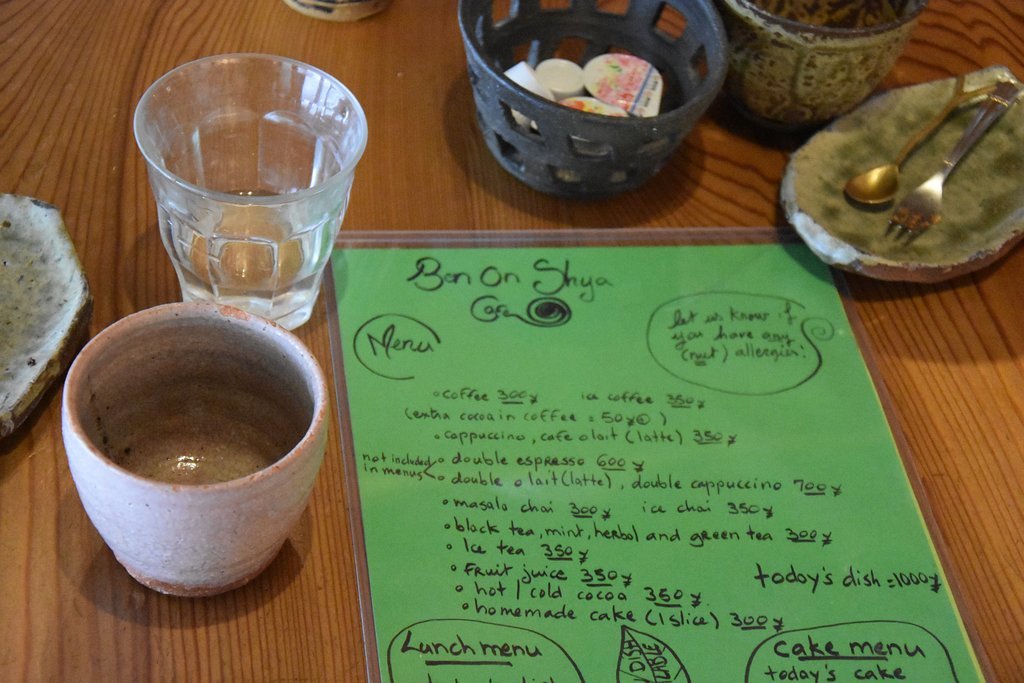 Bon On Shya
Cafe
Menu
let us know if
you have any
(nut) allergies!
• coffee 300¥ ice coffee 350¥
(extra cocoa in coffee = 50¥ )
• cappuccino, cafe o lait (latte) 350¥
not included
in menus
• double espresso 600¥
• double o lait (latte), double cappuccino 700¥
• masala chai 300¥ ice chai 350¥
• black tea, mint, herbal and green tea 300¥
• Ice tea 350¥
• Fruit juice 350¥
• hot / cold cocoa 350¥
• homemade cake (1 slice) 300¥
today's dish = 1000¥
Lunch menu
Cake menu
today's cake